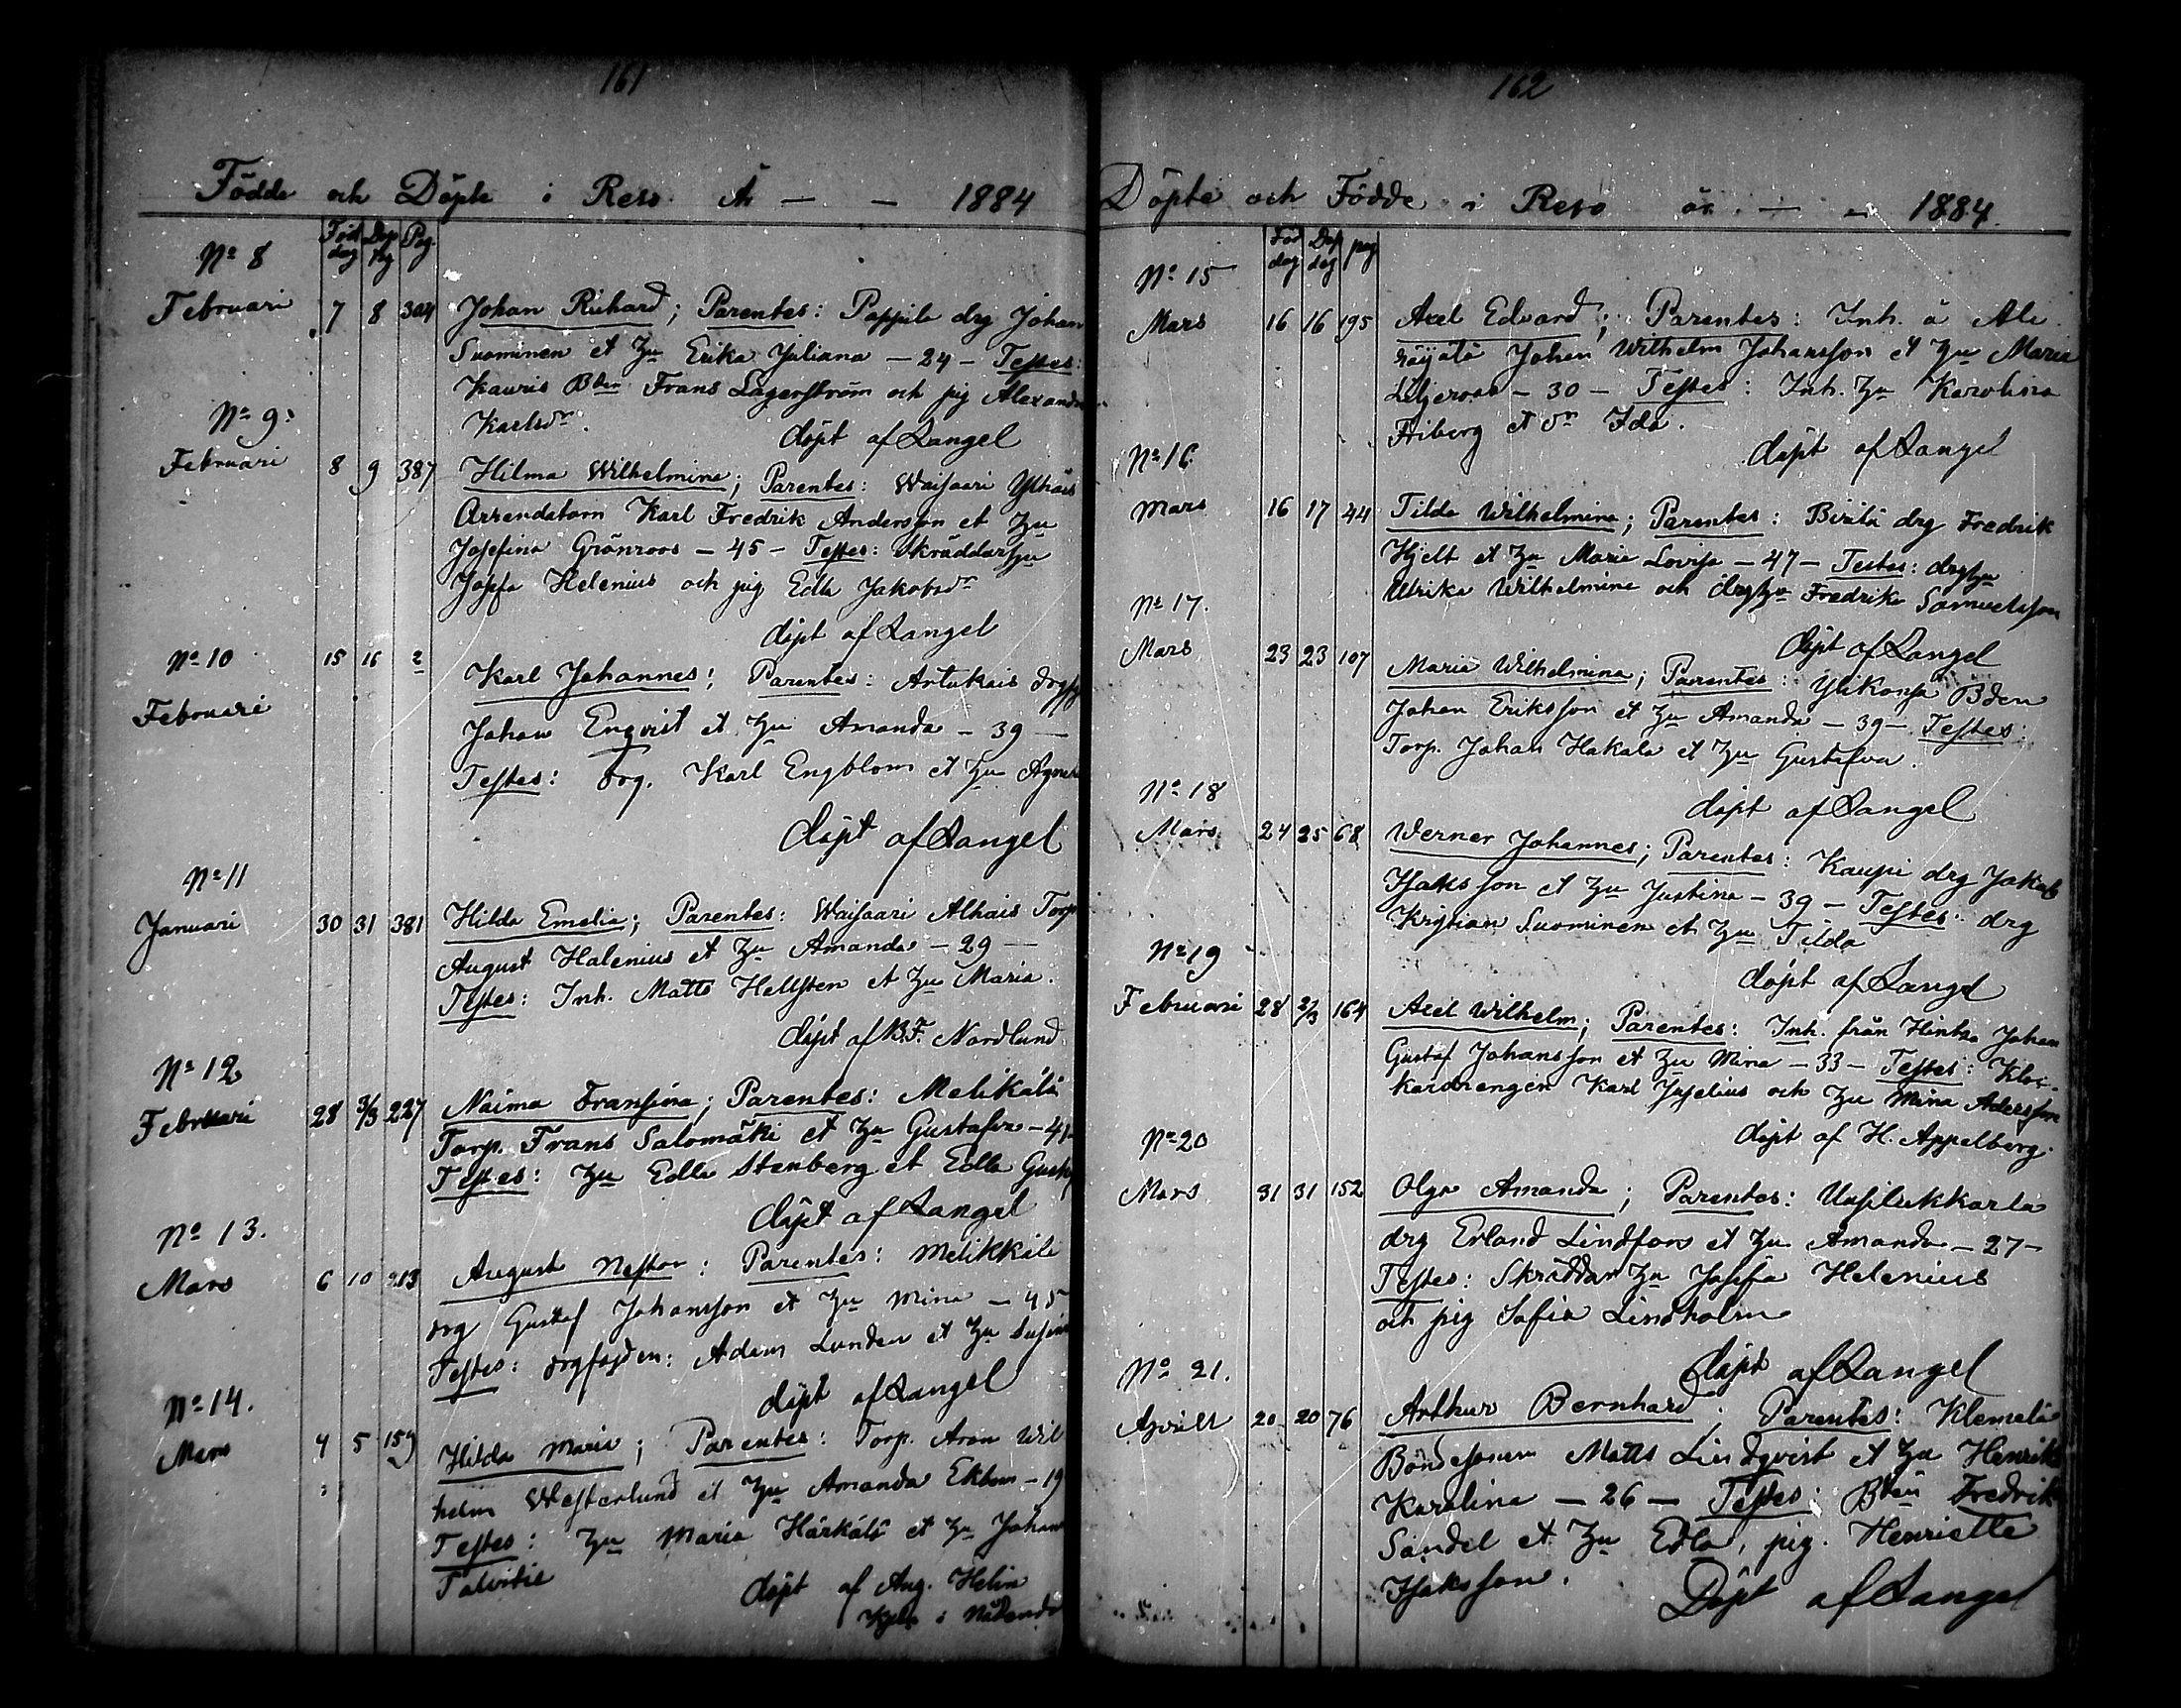 161
Födde och Döpte i Reso År — — 1884
Föd dag Döp dag Pag.
No 8
Februari 7 8 304 Johan Richard; Parentes: Pappila drg Johan
Suominen et Hu Erika Juliana — 24 — Testes:
Kauris Bden Frans Lagerström och pig Alexandra
Karlsdr.
döpt af Rangel
No 9.
Februari 8 9 387 Hilma Wilhelmina; Parentes: Waisaari Ylhais
Arrendatorn Karl Fredrik Andersson et Hu
Josefina Grönroos — 45 — Testes: Skräddarhu
Josefa Helenius och pig Edla Jakobsdr
döpt af Rangel
No 10
Februari 15 16 2 Karl Johannes; Parentes: Artukais
Johan Enqvist et Hu Amanda — 39 —
Testes: drg. Karl Engblom et Hu
döpt af Rangel
No 11
Januari 30 31 381 Hilda Emelia; Parentes: Waisaari Alhais Torp
August Halenius et Hu Amanda — 29 —
Testes: Inh. Matts Hellsten et Hu Maria.
döpt af B.F. Nordlund
No 12
Februari 28 3/3 227 Naima Fransina; Parentes: Melikälä
Torp. Frans Salomäki et Hu Gustafva — 41 —
Testes: Hu Edla Stenberg et Edla
döpt af Rangel
No 13.
Mars 6 10 213 August Nestor: Parentes: Melikkälä
drg Gustaf Johansson et Hu Mina — 45
Testes: Adam Lunden et Hu
döpt af Rangel
No 14.
Mars 4 5 159 Hilda Maria; Parentes: Torp. Aron Wil
helm Westerlund et Hu Amanda Ekbom — 19
Testes: Hu Maria Härkälä et Hu Johan
Talvitie
döpt af Aug. Helin
i Nådendal
162
Döpte och Födde i Reso år. — — 1884.
Föd dag Döp dag pag
No 15
Mars 16 16 195 Axel Edvard; Parentes: Inh. å Ale
Johan Wilhelm Johansson et Hu Maria
Liljeroos — 30 — Testes: Inh. Hu Karolina
Friberg et dr Ida.
döpt af Rangel
No 16
Mars 16 17 44 Tilda Wilhelmina; Parentes: drg Fredrik
Hjelt et Hu Maria Lovisa — 47 — Testes: drghu
Ulrika Wilhelmina och drghu Fredrika Samuelsson
döpt af Rangel
No 17.
Mars 23 23 107 Maria Wilhelmina; Parentes: Ylikonsa Bden
Johan Eriksson et Hu Amanda — 39 — Testes:
Torp. Johan Hakala et Hu Gustafva.
döpt af Rangel
No 18
Mars 24 25 68 Werner Johannes; Parentes: Kaupi drg Jakob
Isaksson et Hu Justina — 39 — Testes: drg
Kristian Suominen et Hu Tilda
döpt af Rangel
No 19
Februari 28 2/3 164 Axel Wilhelm; Parentes: Inh. från Hintsa Johan
Gustaf Johansson et Hu Mina — 33 — Testes: Kloc-
karedrengen Karl Juselius och Hu Mina Adersson
döpt af H. Appelberg.
No 20
Mars 31 31 152 Olga Amanda; Parentes: Uusilukkarla
drg Erland Lindfors et Hu Amanda — 27 —
Testes: Skräddar Hu Josefa Helenius
och pig Sofia Lindholm
döpt af Rangel
No 21.
Aprill 20 20 76 Arthur Bernhard; Parentes: Klemelä
Bondesonen Matts Lindqvist et Hu Henrika
Karolina — 26 — Testes: Bden Fredrik
Sandel et Hu Edla, pig. Henrietta
Isaksson.
Döpt af Rangel